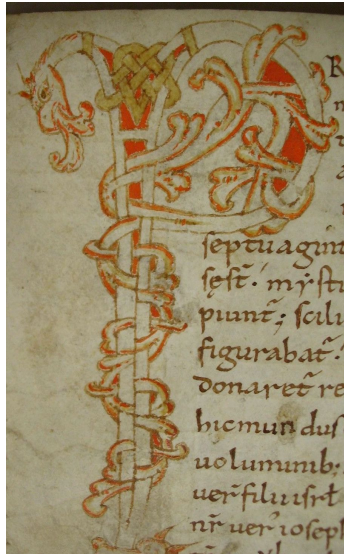 P R
septuagin
sest̄. mysti
piunt̄; scili
figurabat̄.
donaret̄ re
hic mundus
uoluminib;
uer̄ filii isrł
nr̄ uer̄ ioseph